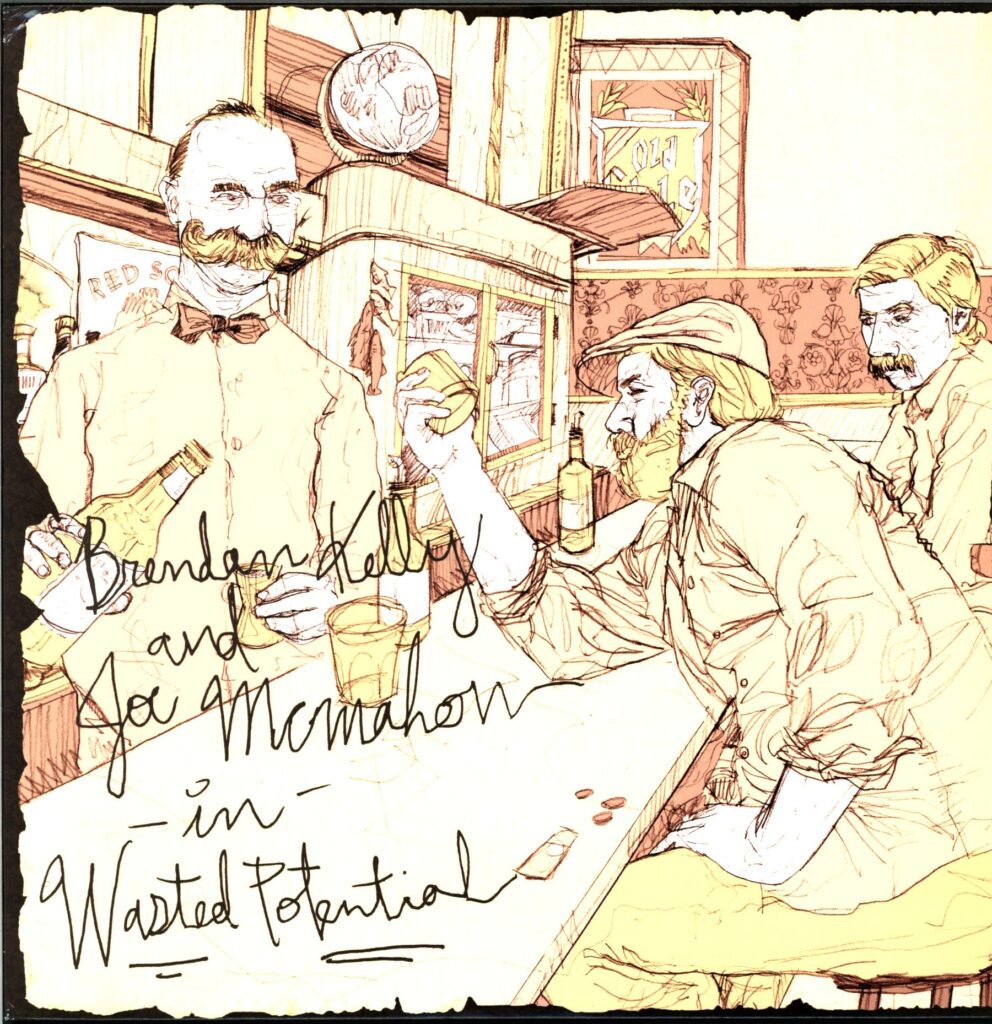 RED SO
Old
Brendan Kelly
and
Joe Mcmahon
- in -
Wasted Potential